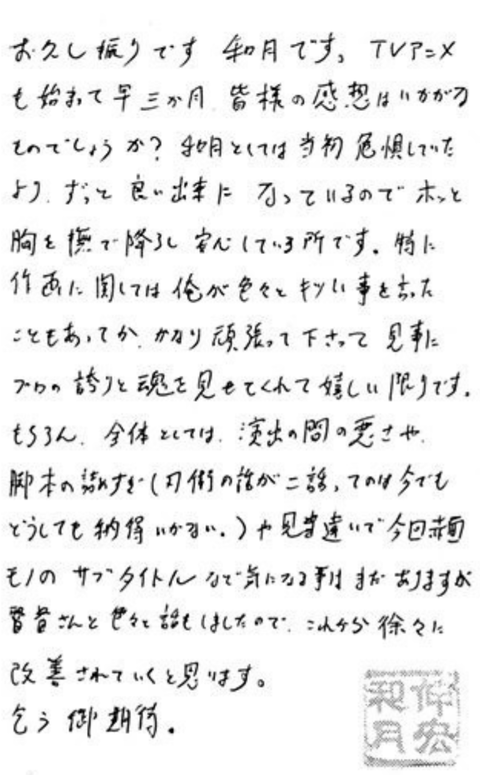 お久し振りです 和月です。TVアニメ
も始まって早三か月 皆様の感想はいかがな
ものでしょうか? 和月としては当初危惧していた
より、ずっと良い出来になっているのでホッと
胸を撫で降ろし安心している所です。特に
作画に関しては俺が色々とキツい事を言った
こともあってか、かなり頑張って下さって見事に
プロの誇りと魂を見せてくれて嬉しい限りです。
もちろん、全体としては、演出の間の悪さや、
脚本の詰めすぎ(刃衛の話が二話ってのは今でも
どうしても納得いかない。)や見当違いで今回赤面
モノのサブタイトルなど気になる事はまだありますが
監督さんと色々と話もしましたので、これから徐々に
改善されていくと思います。
乞う御期待。
和月
伸宏